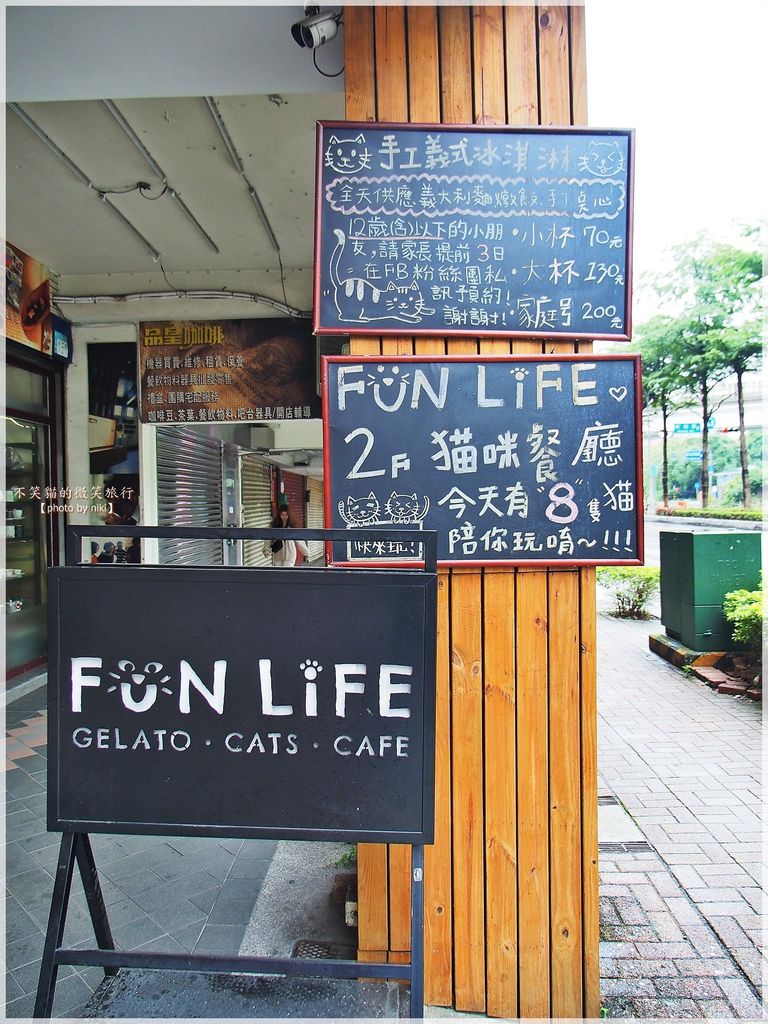 手工義式冰淇淋
全天供應義大利麵燉飯.手工點心
12歲(含)以下的小朋
友,請家長提前3日
在FB粉絲團私
訊預約!
謝謝!
·小杯 70元
·大杯 130元
·家庭号 200元
FUN LiFE
2F 貓咪餐廳
今天有"8"隻貓
陪你玩唷~!!!
快來玩!
品皇咖啡
機器買賣.維修.租賃.保養
餐飲物料器具批發零售
禮盒.團購宅配服務
咖啡豆.茶葉.餐飲物料.吧台器具/開店輔導
不笑貓的微笑旅行
【photo by niki】
FUN LiFE
GELATO · CATS · CAFE